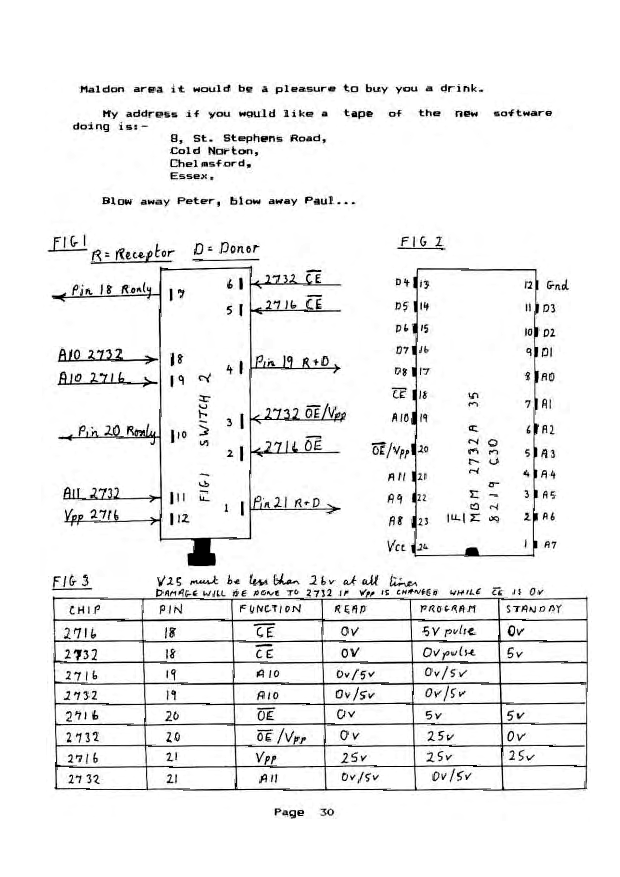 Maldon area it would be a pleasure to buy you a drink.
My address if you would like a tape of the new software
doing is:-
8, St. Stephens Road,
Cold Norton,
Chelmsford,
Essex.
Blow away Peter, blow away Paul...
FIG 1
R = Receptor D = Donor
Pin 18 R only
17
A10 2732
18
A10 2716
19
Pin 20 R only
110
A11 2732
111
Vpp 2716
112
FIG 1 SWITCH 2
6 2732 C̅E̅
5 2716 C̅E̅
4 Pin 19 R+D
3 2732 O̅E̅/Vpp
2 2716 O̅E̅
1 Pin 21 R+D
FIG 2
D4 13 12 Gnd
D5 14 11 D3
D6 15 10 D2
D7 16 9 D1
D8 17 8 A0
C̅E̅ 18 7 A1
A10 19 6 A2
O̅E̅/Vpp 20 5 A3
A11 21 4 A4
A9 22 3 A5
A8 23 2 A6
Vcc 24 1 A7
F MBM 2732A 35
8219 C30
FIG 3
V25 must be less than 26v at all times
DAMAGE WILL BE DONE TO 2732 IF Vpp IS CHANGED WHILE C̅E̅ IS 0v
CHIP PIN FUNCTION READ PROGRAM STANDBY
2716 18 C̅E̅ 0V 5V pulse 0v
2732 18 C̅E̅ 0V 0v pulse 5v
2716 19 A10 0v/5v 0v/5v
2732 19 A10 0v/5v 0v/5v
2716 20 O̅E̅ 0v 5v 5v
2732 20 O̅E̅/Vpp 0v 25v 0v
2716 21 Vpp 25v 25v 25v
2732 21 A11 0v/5v 0v/5v
Page 30